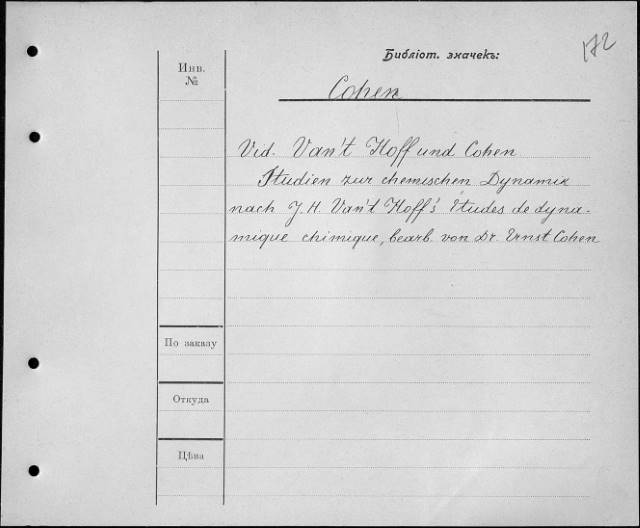 Библіот. значекъ:
172
Инв.
№
Cohen
Vid. Van't Hoff und Cohen
Studien zur chemischen Dynamik
nach J. H. Van't Hoff's Etudes de dyna-
mique chimique, bearb. von Dr. Ernst Cohen
По заказу
Откуда
Цѣна